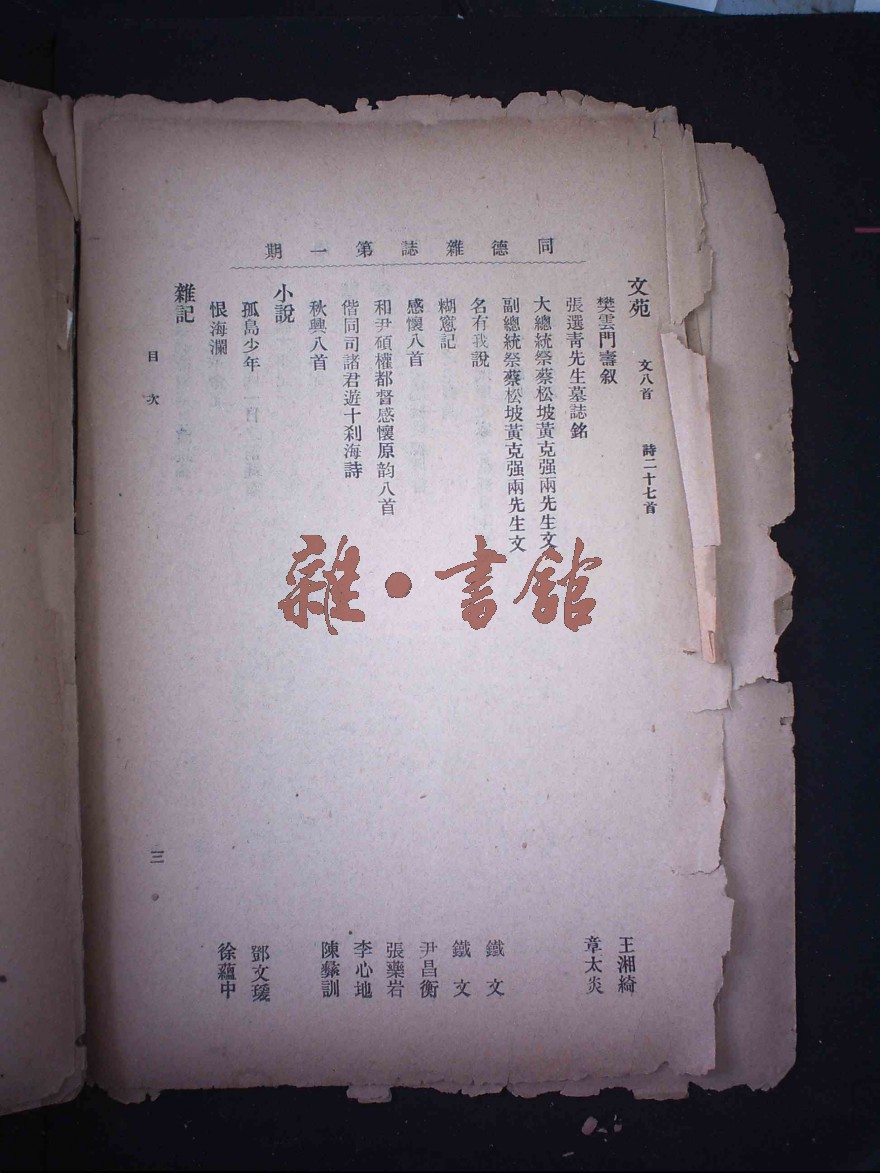 同德雜誌第一期
文苑 文八首 詩二十七首
樊雲門壽叙 王湘綺
張選青先生墓誌銘 章太炎
大總統祭蔡松坡黃克强兩先生文
副總統祭蔡松坡黃克强兩先生文
名有我說 鐵文
糊窻記 鐵文
感懷八首 尹昌衡
和尹碩權都督感懷原韵八首 張藥岩
偕同司諸君遊十刹海詩 李心地
秋興八首 陳彞訓
小說
孤島少年 鄧文瑗
恨海瀾 徐蘊中
雜記
目次
三
雜·書館